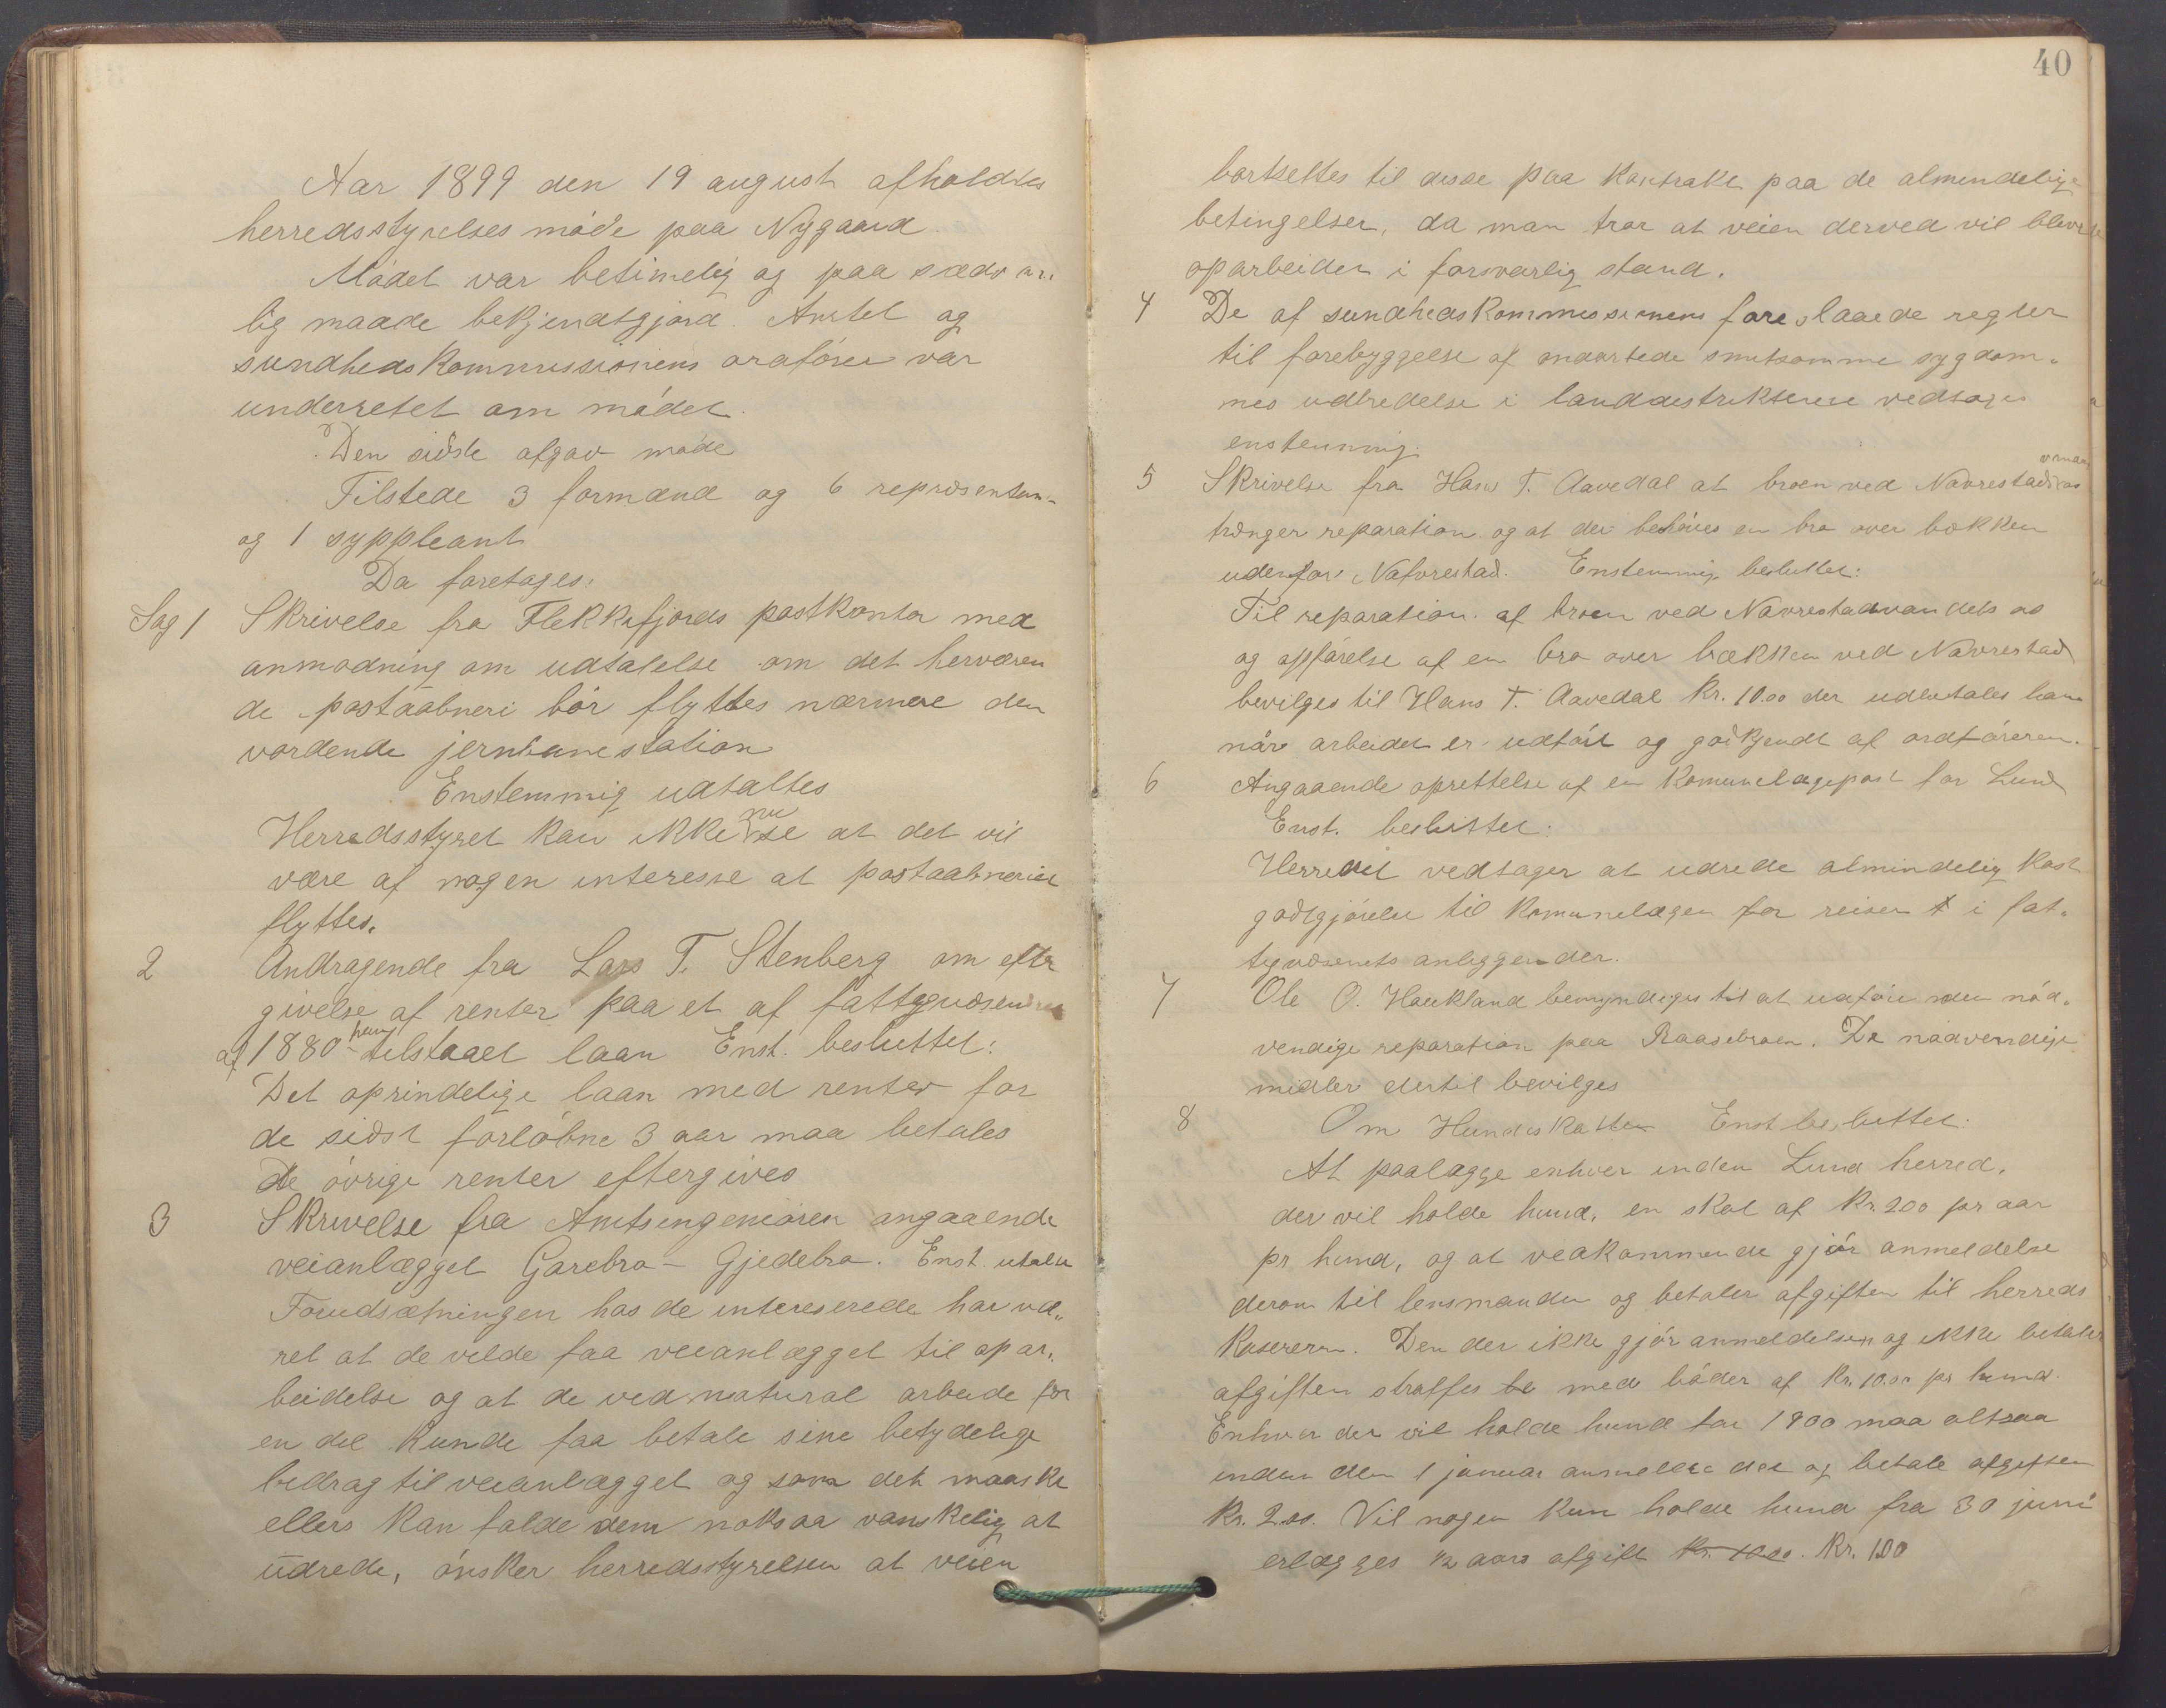 Aar 1899 den 19 august afholdtes
herredsstyrelses møde paa Nygaard.
Mødet var betimelig og paa sædvan
lig maade bekjendtgjord. Amtet og
sundhedskommissionens ordfører var
underretet om mødet.
Den sidste afgav møde
Tilstede 3 formænd og 6 repræsentan-
og 1 syppleant
Da foretages:
Sag 1 Skrivelse fra Flekkefjords postkontor med
anmodning om udtalelse om det herværen
de postaabneri bør flyttes nærmere den
vordende jernbanestation
Enstemmig udtaltes
Herredsstyret kan ikke nu se at det vil
være af nogen interesse at postaabneriet
flyttes.
2 Andragende fra Lars T. Stenberg om efter
givelse af renter paa et af fattigvæsenet
af 1880 ham tilstaaet laan Enst. besluttet:
Det oprindelige laan med renter for
de sidst forløbne 3 aar maa betales
De øvrige renter eftergives
3 Skrivelse fra Amtsingeniøren angaaende
veianlægget Garebro - Gjedebro. Enst. utalte
Forudsætningen hos de intereserede har væ„
ret at de vilde faa veianlægget til opar„
beidelse og at de ved natural arbeide for
en del kunde faa betale sine betydelige
bidrag til veianlægget og som det maaske
ellers kan falde dem noksaa vanskelig at
udrede, ønsker herredsstyrelsen at veien
40
bortsettes til disse paa kontrakt paa de almendelige
betingelser, da man tror at veien derved vil blive
oparbeidet i forsvarlig stand.
4 De af sundhedskommissionens foreslaaede regler
til forebyggelse af ondartede smitsomme sygdom„
mes udbredelse i landdistrikterne vedtages
enstemmig.
5 Skrivelse fra Hans T. Aavedal at broen ved Navrestad
trænger reparation og at der behøves en bro over bækken
udenfor Navrestad. Enstemmig besluttet:
Til reparation af broen ved Navrestadvandets os
og opførelse af en bro over bækken ved Navrestad
bevilges til Hans T. Aavedal Kr. 10.00 der udbetales ham
når arbeidet er udført og godkjendt af ordføreren.
6 Angaaende oprettelse af en Komunelægepost for Lund
Enst. besluttet:
Herredet vedtager at udrede almindelig kost
godtgjørelse til Komunelægen for reiser i fat„
tigvæsenets anliggender.
7 Ole O. Haukland bemyndiges til at udføre den nød„
vendige reparation paa Raasebroen. De nødvendige
midler dertil bevilges
8 Om Hundeskatten Enst besluttet:
At paalægge enhver inden Lund herred,
der vil holde hund, en skat af Kr. 200 pr aar
pr hund, og at vedkommende gjør anmeldelse
derom til lensmanden og betaler afgiften til herreds
kasereren. Den der ikke gjør anmeldelsen og ikke betaler
afgiften straffes med bøder af Kr. 10.00 pr hund.
Enhver der vil holde hund for 1900 maa altsaa
inden den 1 januar anmelde det og betale afgiften
Kr. 2.00. Vil nogen kun holde hund fra 30 juni
erlægges ½ aars afgift Kr. 10.00. Kr. 1.00